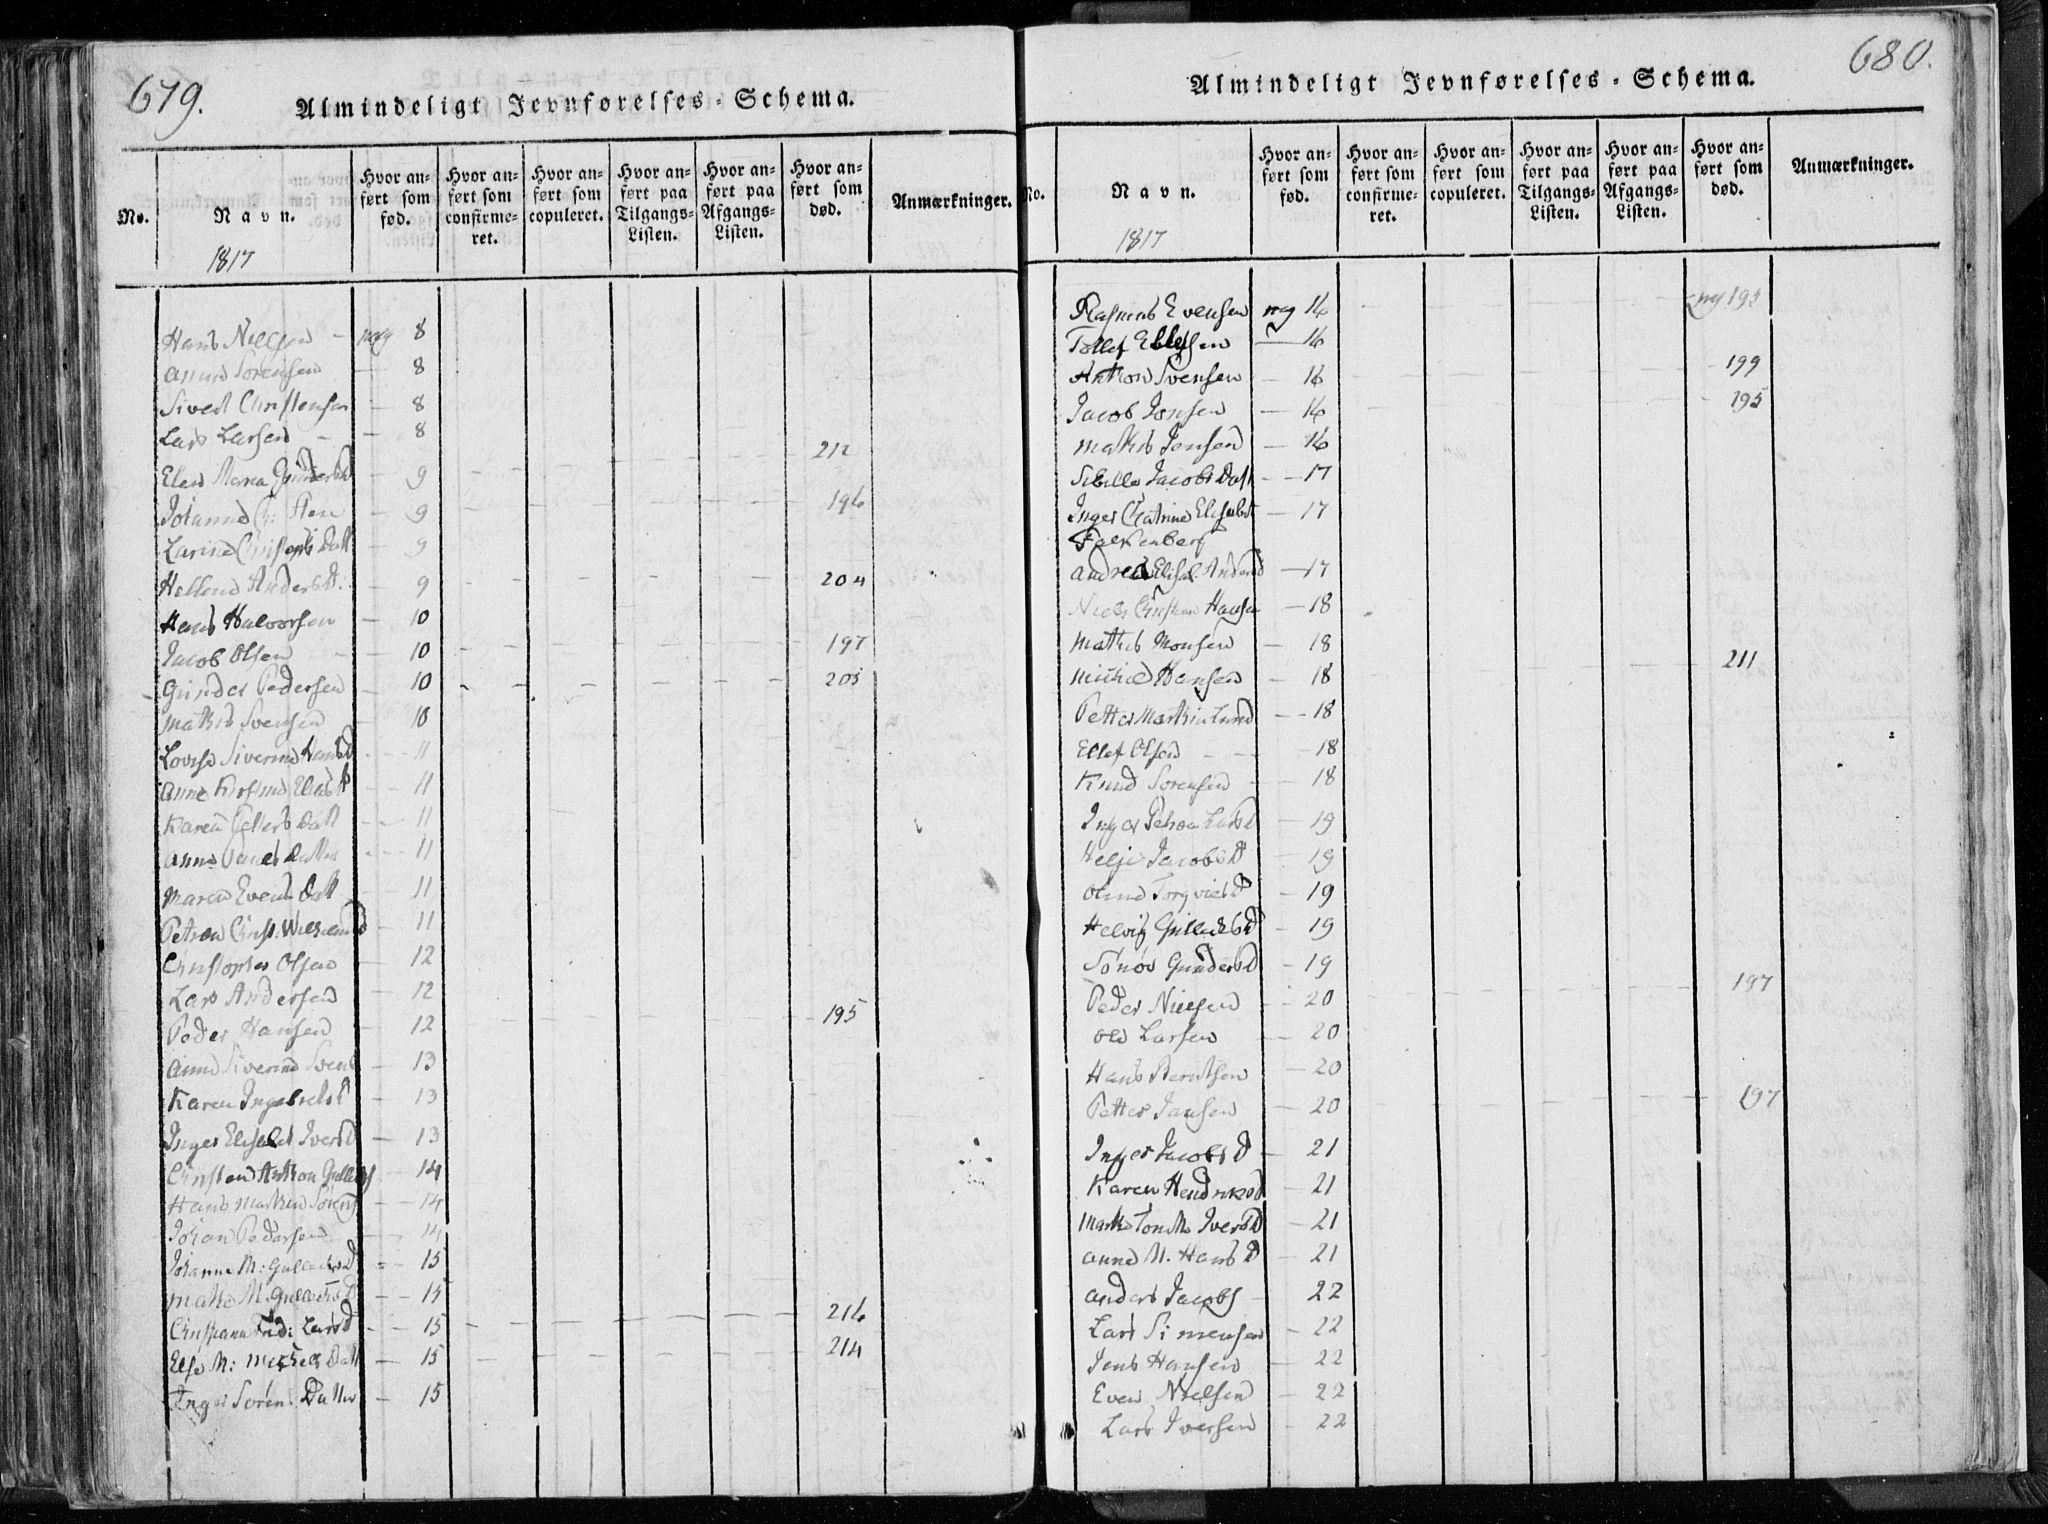 679.
Almindeligt Jevnførelses-Schema.
No.
Navn.
Hvor anført som fød.
Hvor anført som confirmeret.
Hvor anført som copuleret.
Hvor anført paa Tilgangs-Listen.
Hvor anført paa Afgangs-Listen.
Hvor anført som død.
Anmærkninger.
1817
Hans Nielsen — pag 8
Sørensen — 8
Sivert Christensen — 8
Lars Larsen — 8 212
Elen Maria — 9
Johanne C: — 9 196
Larine Christensdatt — 9
Hellene Anders D. 9 204
Hans Halvorsen — 10
Jacob Olsen — 10 197
Gunder Pedersen — 10 205
Mathis Svensen 10
Lovise Siverine Hans D 11
Anne Kirstine Elias D 11
Karen Datt — 11
Anne Datter — 11
Maren Evens Datt — 11
Petrea Christ: — 11
Christopher Olsen — 12
Lars Andersen — 12
Peder Hansen — 12 195
Anne Siverine Svens — 13
Karen Ingebrets D — 13
Inger Elisabet Ivers D — 13
Christen Anthon — 14
Hans Mathen Sørens — 14
Johan Pedersen — 14
Johanne M: D — 15
Mathe M. D — 15
Christiane Fred: Lars D — 15 216
Else M: Michels Datt — 15 214
Inger Sørens Datter — 15
680.
Almindeligt Jevnførelses-Schema.
No.
Navn.
Hvor anført som fød.
Hvor anført som confirmeret.
Hvor anført som copuleret.
Hvor anført paa Tilgangs-Listen.
Hvor anført paa Afgangs-Listen.
Hvor anført som død.
Anmærkninger.
1817
Rasmus Evensen pag 16 pag 195
Tollef Ellefsen — 16
Anthon Svensen — 16 199
Jacob Jonsen — 16 195
Mathis Jensen — 16
Sibille Jacobs Datt — 17
Inger Catrine Elisabet — 17
Falkenberg
Andrea Elisab. Anders D — 17
Niels Christian Hansen — 18
Mathis Monsen — 18
Michel Hansen — 18 211
Petter Marthin Lund — 18
Ellef Olsen — 18
Knud Sørensen — 18
Inger Petrea Lars D — 19
Helje Jacobs D — 19
D — 19
Helvig D — 19
Gunders D — 19
Peder Nielsen — 20 197
Ole Larsen — 20
Hans Berntsen — 20
Petter Jansen — 20 197
Inger Jacobs D — 21
Karen Hendriks D — 21
Ivers D — 21
Anne M. Hans D — 21
Anders Jacobs — 22
Lars Simensen — 22
Jens Hansen — 22
Even Nielsen — 22
Lars Iversen — 22